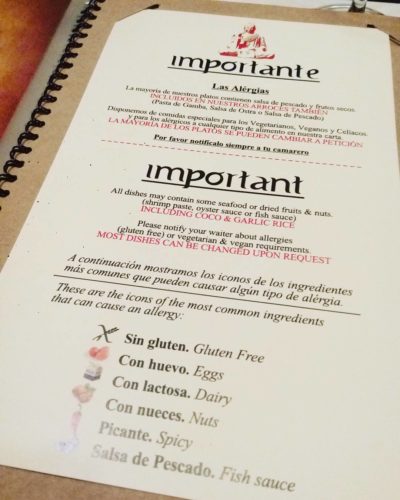 importante
Las Alérgias
La mayoría de nuestros platos contienen salsa de pescado y frutos secos.
INCLUIDOS EN NUESTROS ARROCES TAMBIÉN
(Pasta de Gamba, Salsa de Ostra o Salsa de Pescado)
Disponemos de comidas especiales para los Vegetarianos, Veganos y Celiacos.
y para los alérgicos a cualquier tipo de alimento en nuestra carta.
LA MAYORÍA DE LOS PLATOS SE PUEDEN CAMBIAR A PETICIÓN
Por favor notifícalo siempre a tu camarero
important
All dishes may contain some seafood or dried fruits & nuts.
(shrimp paste, oyster sauce or fish sauce)
INCLUDING COCO & GARLIC RICE
Please notify your waiter about allergies
(gluten free) or vegetarian & vegan requirements.
MOST DISHES CAN BE CHANGED UPON REQUEST
A continuación mostramos los iconos de los ingredientes
más comunes que pueden causar algún tipo de alérgia.
These are the icons of the most common ingredients
that can cause an allergy:
Sin gluten. Gluten Free
Con huevo. Eggs
Con lactosa. Dairy
Con nueces. Nuts
Picante. Spicy
Salsa de Pescado. Fish sauce